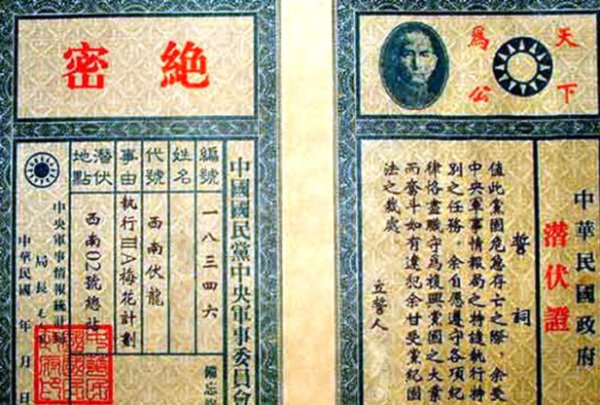 天下
為公
中華民國政府
潛伏證
誓詞
值此黨國危急存亡之際,余受
中央軍事情報局之特遣執行特
別之任務。余自愿遵守各項紀
律恪盡職守為復興黨國之大業
而奮斗如有違犯余甘受黨紀國
法之裁處。
立誓人
絕密
中國國民黨中央軍事委員會
備忘
編號 一八三四六
姓名
代號 西南伏龍
事由 執行IIIA梅花計劃
潛伏地點 西南02號總站
中央軍事情報統計局
局長
中華民國 年 月 日